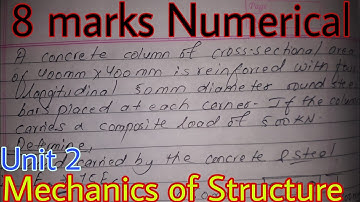 8 marks Numerical
A concrete column of cross-sectional area
of 400mm x 400mm is reinforced with four
longitudinal 50mm diameter round steel
bars placed at each corner. If the column
carries a composite load of 500kN.
Determine,
carried by the concrete & steel
Unit 2
Mechanics of Structure